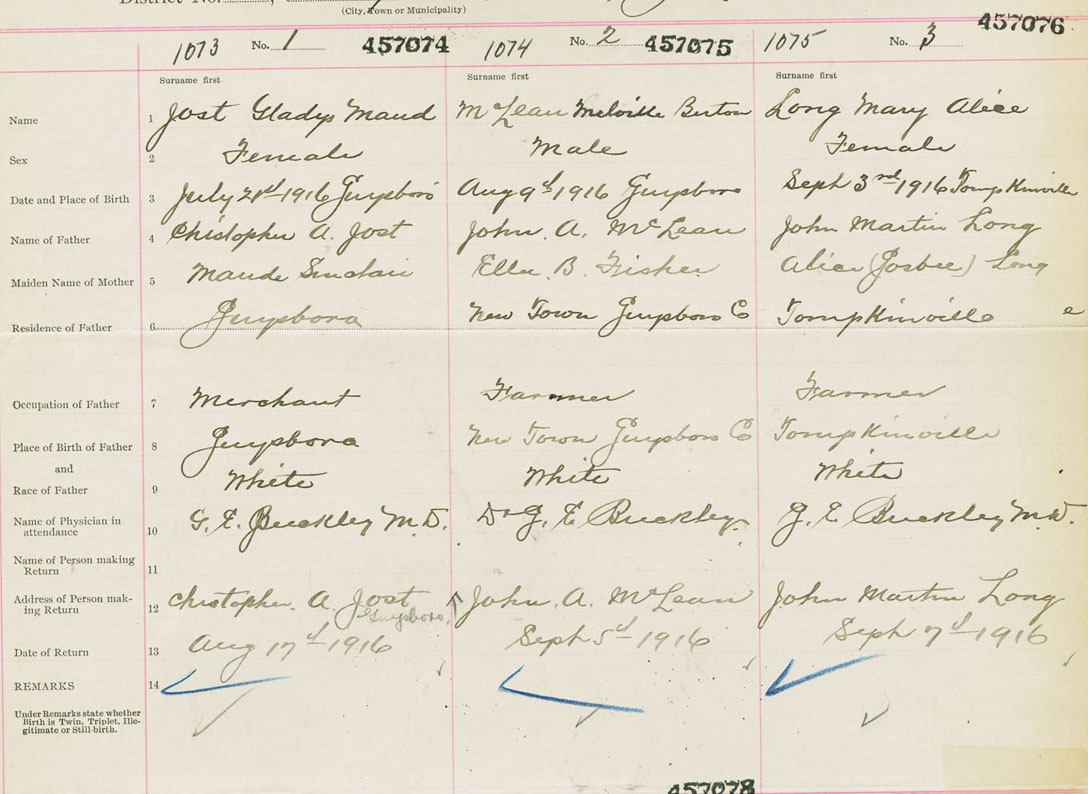 District No.
(City, Town or Municipality)
457076
1073 No. 1 457074 1074 No. 2 457075 1075 No. 3
Surname first Surname first Surname first
Name 1 Jost Gladys Maud McLean Melville Burton Long Mary Alice
Sex 2 Female Male Female
Date and Place of Birth 3 July 21st 1916 Guysboro Aug 9th 1916 Guysboro Sept 3rd 1916 Tompkinville
Name of Father 4 Christopher A. Jost John. A. McLean John Martin Long
Maiden Name of Mother 5 Maude Sinclair Ella B. Fisher Alice (Josbee) Long
Residence of Father 6 Guysboro New Town Guysboro Co Tompkinville e
Occupation of Father 7 Merchant Farmer Farmer
Place of Birth of Father 8 Guysboro New Town Guysboro Co Tompkinville
and
Race of Father 9 White White White
Name of Physician in
attendance 10 G. E. Buckley M.D. Dr G. E. Buckley G. E. Buckley M.D.
Name of Person making
Return 11
Address of Person mak-
ing Return 12 Christopher. A. Jost John. A. McLean John Martin Long
Guysboro
Date of Return 13 Aug 17th 1916 Sept 5th 1916 Sept 7th 1916
REMARKS 14
Under Remarks state whether
Birth is Twin, Triplet, Ille-
gitimate or Still-birth.
457078